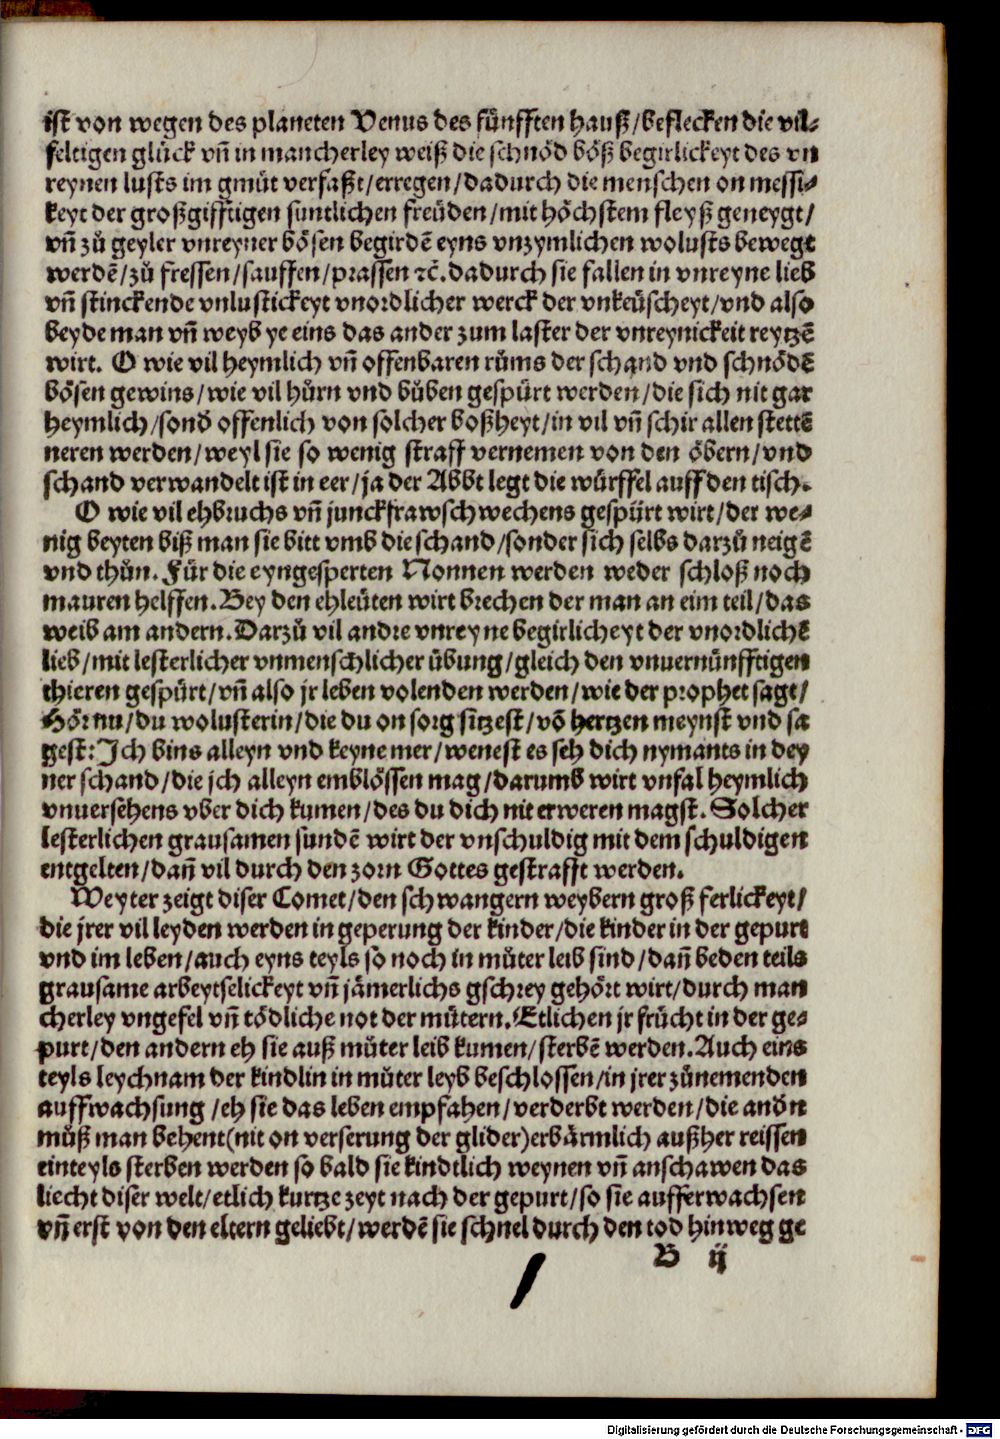 ist von wegen des planeten Venus des fünfften hauß/beflecken die vil⸗
feltigen glück vñ in mancherley weiß die schnöd böß begirlickeyt des vn
reynen lusts im gmüt verfaßt/erregen/dadurch die menschen on messi⸗
keyt der großgifftigen suntlichen freüden/mit höchstem fleyß geneygt/
vñ zů geyler vnreyner bösen begirdẽ eyns vnzymlichen wolusts bewegt
werdẽ/zů fressen/sauffen/prassen ꝛc̃.dadurch sie fallen in vnreyne lieb
vñ stinckende vnlustickeyt vnordlicher werck der vnkeüscheyt/vnd also
beyde man vñ weyb ye eins das ander zum laster der vnreynickeit reytzẽ
wirt. O wie vil heymlich vñ offenbaren růms der schand vnd schnödẽ
bösen gewins/wie vil hůrn vnd bůben gespürt werden/die sich nit gar
heymlich/sonð offenlich von solcher boßheyt/in vil vñ schir allen stettẽ
neren werden/weyl sie so wenig straff vernemen von den öbern/vnd
schand verwandelt ist in eer/ja der Abbt legt die würffel auff den tisch.
O wie vil ehbruchs vñ junckfrawschwechens gespürt wirt/der we⸗
nig beyten biß man sie bitt vmb die schand/sonder sich selbs darzů neigẽ
vnd thůn. Für die eyngesperten Nonnen werden weder schloß noch
mauren helffen. Bey den ehleüten wirt brechen der man an eim teil/das
weib am andern. Darzů vil andre vnreyne begirlicheyt der vnordlichẽ
lieb/mit lesterlicher vnmenschlicher übung/gleich den vnuernünfftigen
thieren gespürt/vñ also jr leben volenden werden/wie der prophet sagt/
Hör nu/du wolusterin/die du on sorg sitzest/võ hertzen meynst vnd sa
gest: Ich bins alleyn vnd keyne mer/wenest es seh dich nymants in dey
ner schand/die jch alleyn emblössen mag/darumb wirt vnfal heymlich
vnuersehens vber dich kumen/des du dich nit erweren magst. Solcher
lesterlichen grausamen sundẽ wirt der vnschuldig mit dem schuldigen
entgelten/dañ vil durch den zorn Gottes gestrafft werden.
Weyter zeigt diser Comet/den schwangern weybern groß ferlickeyt/
die jrer vil leyden werden in geperung der kinder/die kinder in der gepurt
vnd im leben/auch eyns teyls so noch in můter leib sind/dañ beden teils
grausame arbeytselickeyt vñ jämerlichs gschrey gehört wirt/durch man
cherley vngefel vñ tödliche not der můtern. Etlichen jr frücht in der ge⸗
purt/den andern eh sie auß můter leib kumen/sterbẽ werden. Auch eins
teyls leychnam der kindlin in můter leyb beschlossen/in jrer zůnemenden
auffwachsung/eh sie das leben empfahen/verderbt werden/die anðn
můß man behent(nit on verserung der glider)erbärmlich außher reissen
einteyls sterben werden so bald sie kindtlich weynen vñ anschawen das
liecht diser welt/etlich kurtze zeyt nach der gepurt/so sie aufferwachsen
vñ erst von den eltern geliebt/werdẽ sie schnel durch den tod hinweg ge
B ij
Digitalisierung gefördert durch die Deutsche Forschungsgemeinschaft - DFG